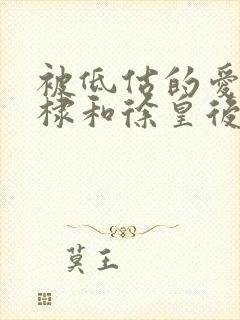 被低估的愛
棣和徐皇後
莫王